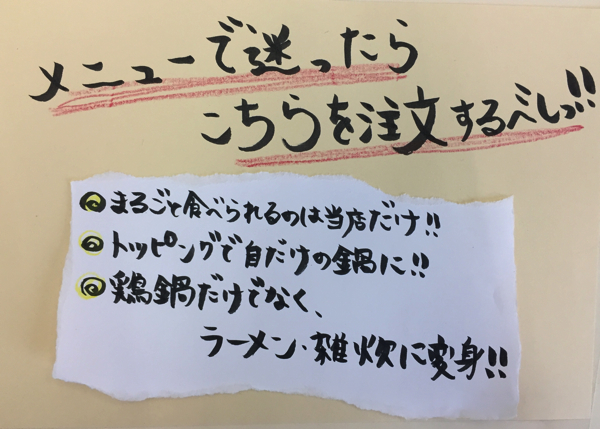 メニューで迷ったら
こちらを注文するべしっ!!
◎まるごと食べられるのは当店だけ!!
◎トッピングで自だけの鍋に!!
◎鶏鍋だけでなく、
ラーメン・雑炊に変身!!